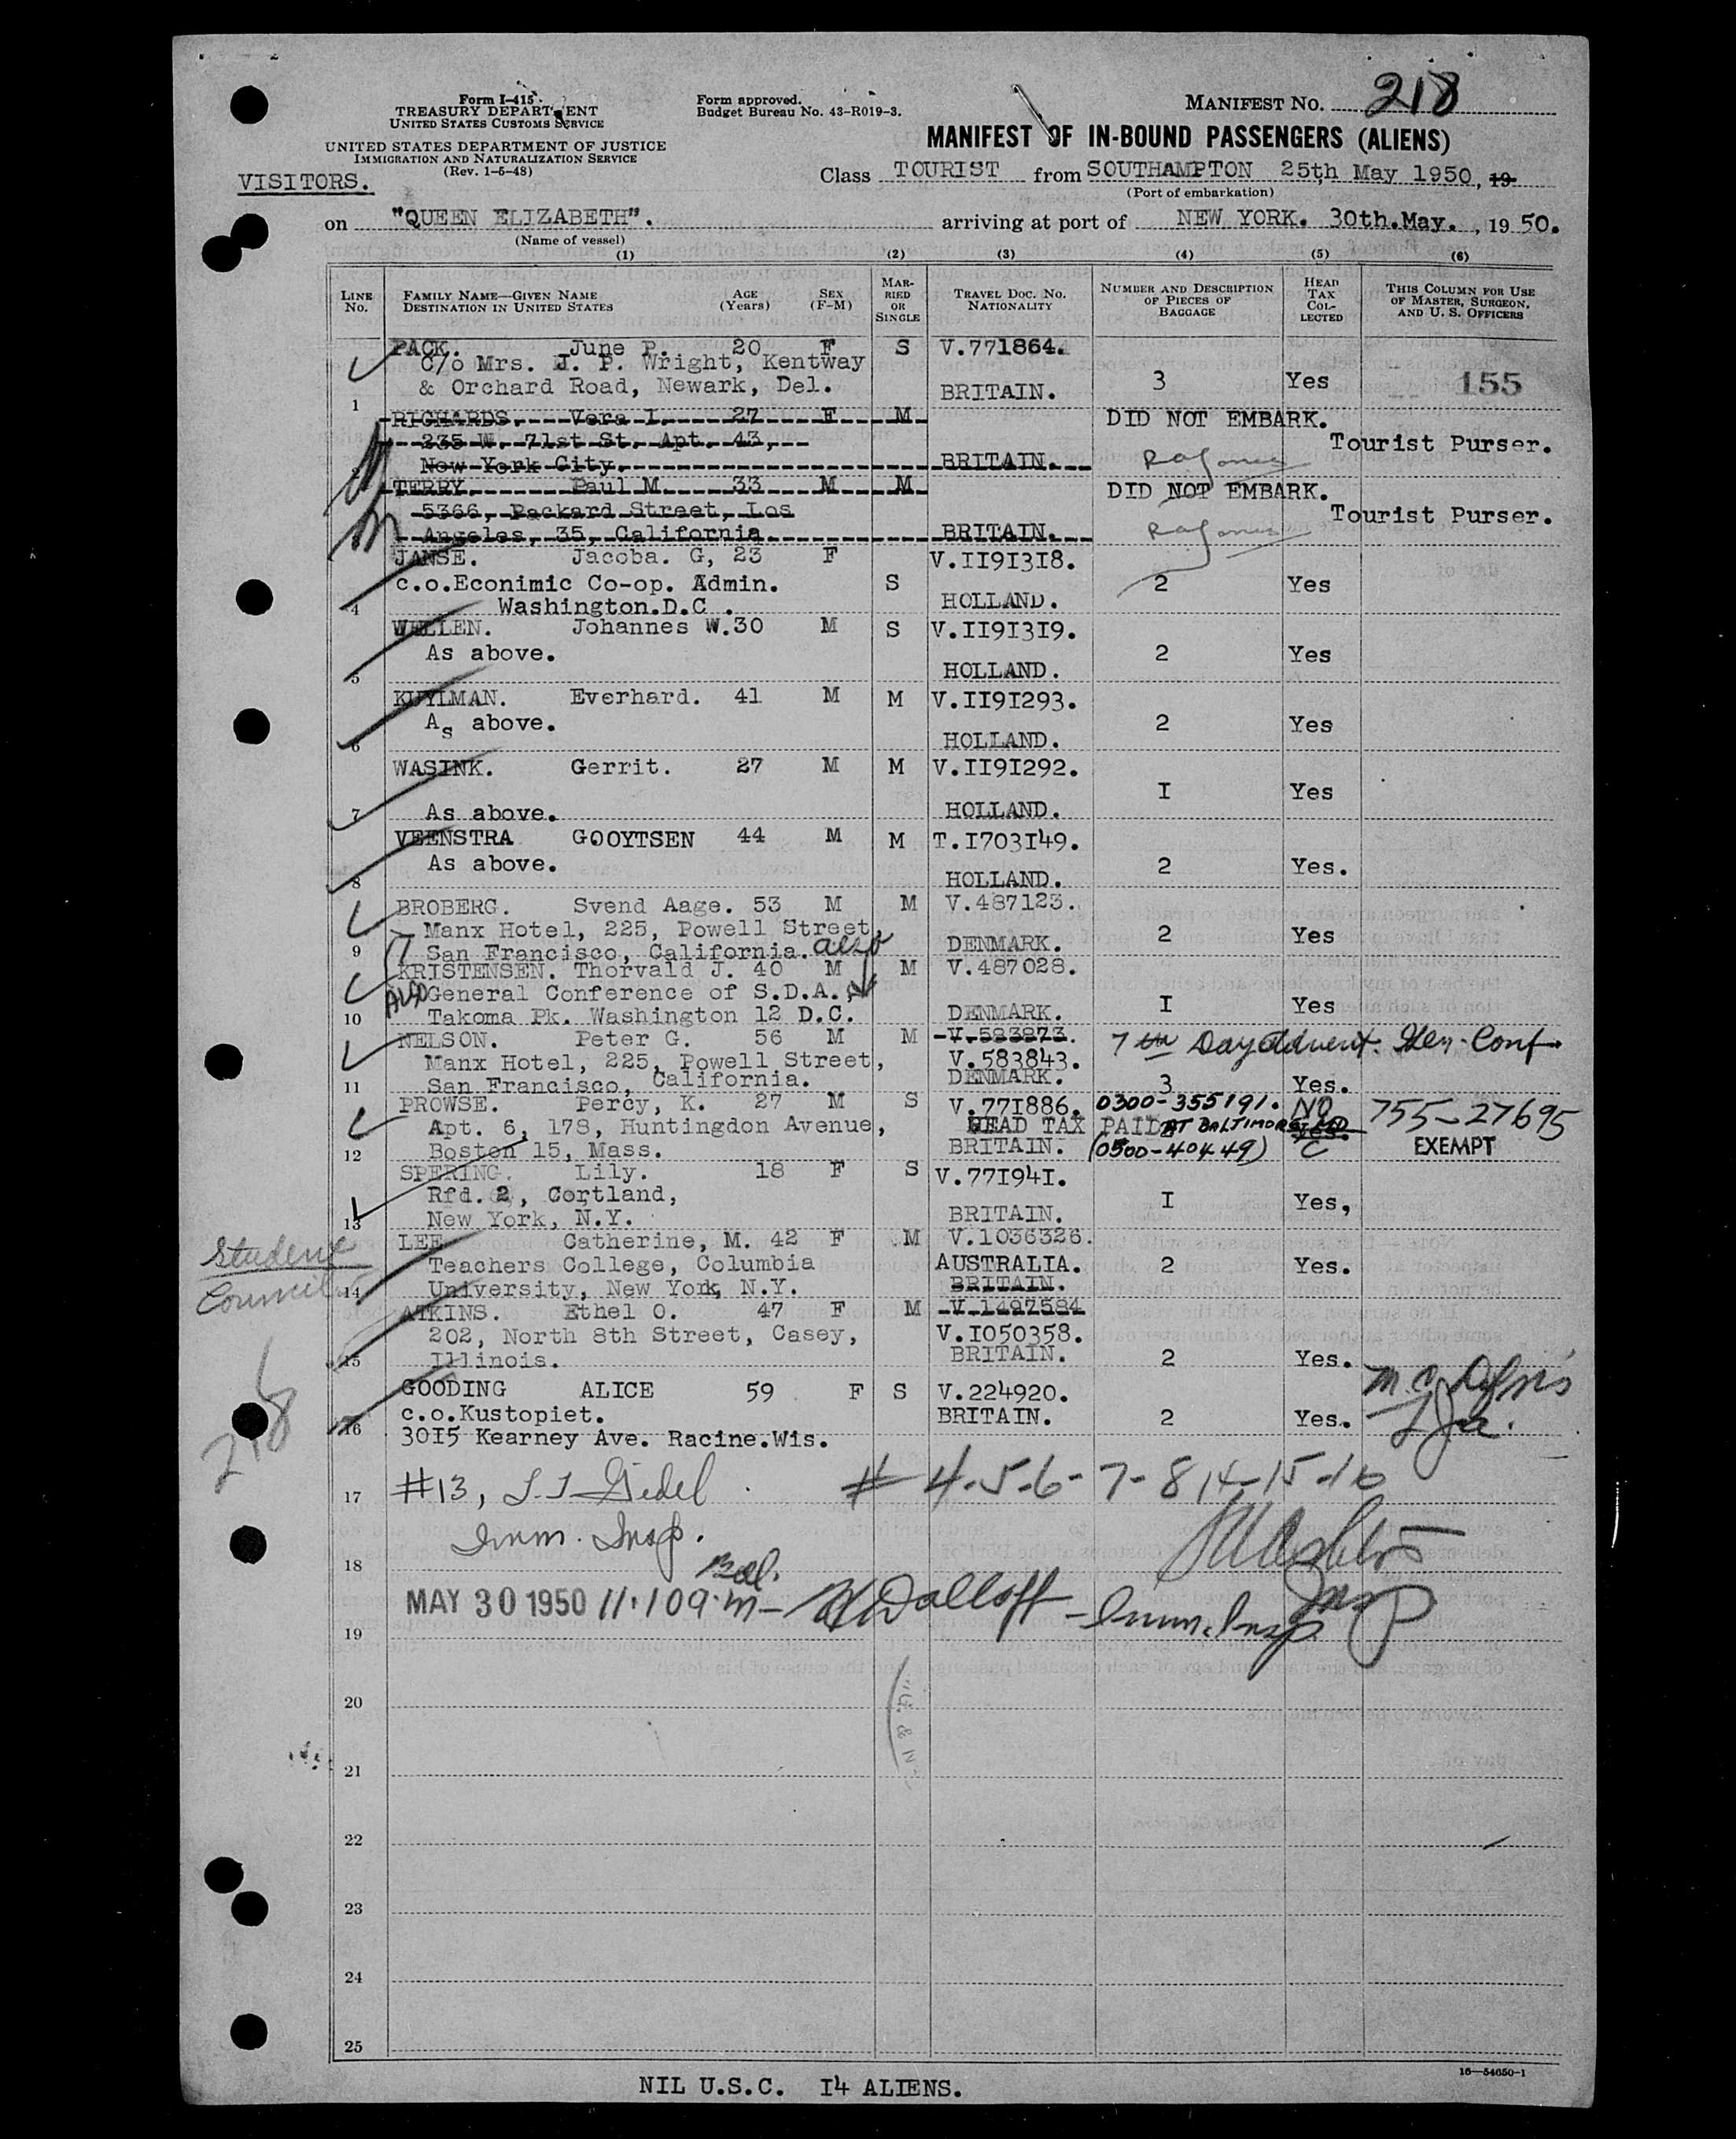 Form I-415
TREASURY DEPARTMENT
UNITED STATES CUSTOMS SERVICE
UNITED STATES DEPARTMENT OF JUSTICE
IMMIGRATION AND NATURALIZATION SERVICE
(Rev. 1-5-48)
VISITORS.
Form approved.
Budget Bureau No. 43-R019-3.
MANIFEST NO. 218
MANIFEST OF IN-BOUND PASSENGERS (ALIENS)
Class TOURIST from SOUTHAMPTON 25th May 1950, 19
(Port of embarkation)
on "QUEEN ELIZABETH". arriving at port of NEW YORK. 30th.May. , 19 50.
(Name of vessel)
(1) (2) (3) (4) (5) (6)
LINE NO. FAMILY NAME—GIVEN NAME DESTINATION IN UNITED STATES AGE (Years) SEX (F-M) MARRIED OR SINGLE TRAVEL DOC. NO. NATIONALITY NUMBER AND DESCRIPTION OF PIECES OF BAGGAGE HEAD TAX COLLECTED THIS COLUMN FOR USE OF MASTER, SURGEON, AND U. S. OFFICERS
PACK. June P. 20 F S V.771864.
C/o Mrs. J. P. Wright, Kentway
& Orchard Road, Newark, Del. BRITAIN. 3 Yes 155
1
RICHARDS. Vera I. 27 F M DID NOT EMBARK.
235 W. 71st St. Apt. 43, Tourist Purser.
New York City. BRITAIN.
2
TERRY. Paul M. 33 M M DID NOT EMBARK.
5366, Packard Street, Los Tourist Purser.
Angeles, 35, California. BRITAIN.
JANSE. Jacoba. G, 23 F V.II9I3I8.
c.o.Econimic Co-op. Admin. S 2 Yes
4 Washington.D.C . HOLLAND.
WELLEN. Johannes W.30 M S V.II9I3I9.
As above. 2 Yes
5 HOLLAND.
KUYLMAN. Everhard. 41 M M V.II9I293.
As above. 2 Yes
6 HOLLAND.
WASINK. Gerrit. 27 M M V.II9I292.
I Yes
7 As above. HOLLAND.
VEENSTRA GOOYTSEN 44 M M T.I703I49.
As above. 2 Yes.
8 HOLLAND.
BROBERG. Svend Aage. 53 M M V.487123.
Manx Hotel, 225, Powell Street, 2 Yes
9 San Francisco, California. also DENMARK.
KRISTENSEN. Thorvald J. 40 M M V.487028.
ALSO General Conference of S.D.A., I Yes
10 Takoma Pk. Washington 12 D.C. DENMARK.
NELSON. Peter G. 56 M M V.583873. 7th Day Advent. Gen. Conf.
Manx Hotel, 225, Powell Street, V.583843.
11 San Francisco, California. DENMARK. 3 Yes.
PROWSE. Percy, K. 27 M S V.771886. 0300-355191. NO 755-27695
Apt. 6, 178, Huntingdon Avenue, HEAD TAX PAID AT BALTIMORE MD
12 Boston 15, Mass. BRITAIN. (0500-40449) EXEMPT
SPERING. Lily. 18 F S V.77I94I.
Rfd. 2, Cortland, I Yes,
13 New York, N.Y. BRITAIN.
LEE Catherine, M. 42 F M V.1036326.
Student Council
Teachers College, Columbia AUSTRALIA. 2 Yes.
14 University, New York, N.Y. BRITAIN.
ATKINS. Ethel O. 47 F M V.1497584
202, North 8th Street, Casey, V.I050358.
15 Illinois. BRITAIN. 2 Yes.
GOODING ALICE 59 F S V.224920.
c.o.Kustopiet. BRITAIN. 2 Yes.
16 30I5 Kearney Ave. Racine.Wis.
218
17 #13, # 4-5-6-7-8,14-15-16
18 Imm. Insp.
Insp
MAY 30 1950 11.10 a.m- Imm. Insp
19
20
21
22
23
24
25
16—54650-1
NIL U.S.C. I4 ALIENS.